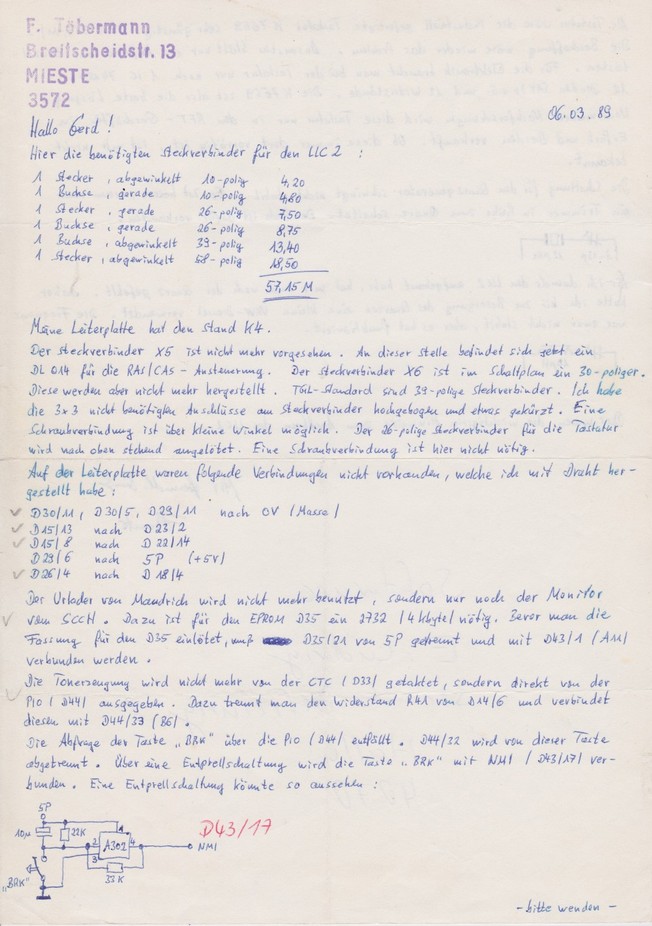 F. Töbermann
Breitscheidstr. 13
MIESTE
3572
06.03.89
Hallo Gerd!
Hier die benötigten Steckverbinder für den LLC2 :
1 Stecker , abgewinkelt 10-polig 4,20
1 Buchse , gerade 10-polig 4,80
1 Stecker , gerade 26-polig 7,50
1 Buchse , gerade 26-polig 8,75
1 Buchse , abgewinkelt 39-polig 13,40
1 Stecker , abgewinkelt 58-polig 18,50
57,15 M
Meine Leiterplatte hat den Stand K4.
Der Steckverbinder X5 ist nicht mehr vorgesehen. An dieser Stelle befindet sich jetzt ein
DL 014 für die RAS/CAS - Ansteuerung. Der Steckverbinder X6 ist im Schaltplan ein 30-poliger.
Diese werden aber nicht mehr hergestellt. TGL-Standard sind 39-polige Steckverbinder. Ich habe
die 3x3 nicht benötigten Anschlüsse am Steckverbinder hochgebogen und etwas gekürzt. Eine
Schraubverbindung ist über kleine Winkel möglich. Der 26-polige Steckverbinder für die Tastatur
wird nach oben stehend angelötet. Eine Schraubverbindung ist hier nicht nötig.
Auf der Leiterplatte waren folgende Verbindungen nicht vorhanden, welche ich mit Draht her-
gestellt habe :
D30/11, D30/5, D29/11 nach 0V (Masse)
D15/13 nach D23/2
D15/8 nach D22/14
D29/6 nach 5P (+5V)
D26/4 nach D18/4
Der Urlader von Mandrich wird nicht mehr benutzt, sondern nur noch der Monitor
vom SCCH. Dazu ist für den EPROM D35 ein 2732 (4 kbyte) nötig. Bevor man die
Fassung für den D35 einlötet, muß D35/21 von 5P getrennt und mit D43/1 (A11)
verbunden werden.
Die Tonerzeugung wird nicht mehr von der CTC (D33) getaktet, sondern direkt von der
PIO (D44) ausgegeben. Dazu trennt man den Widerstand R41 von D14/6 und verbindet
diesen mit D44/33 (B6).
Die Abfrage der Taste „BRK" über die PIO (D44) entfällt. D44/32 wird von dieser Taste
abgetrennt. Über eine Entprellschaltung wird die Taste „BRK" mit NMI (D43/17) ver-
bunden. Eine Entprellschaltung könnte so aussehen :
5P
10µ
22K
2
3
A302
4
D43/17
NMI
33K
„BRK"
- bitte wenden -